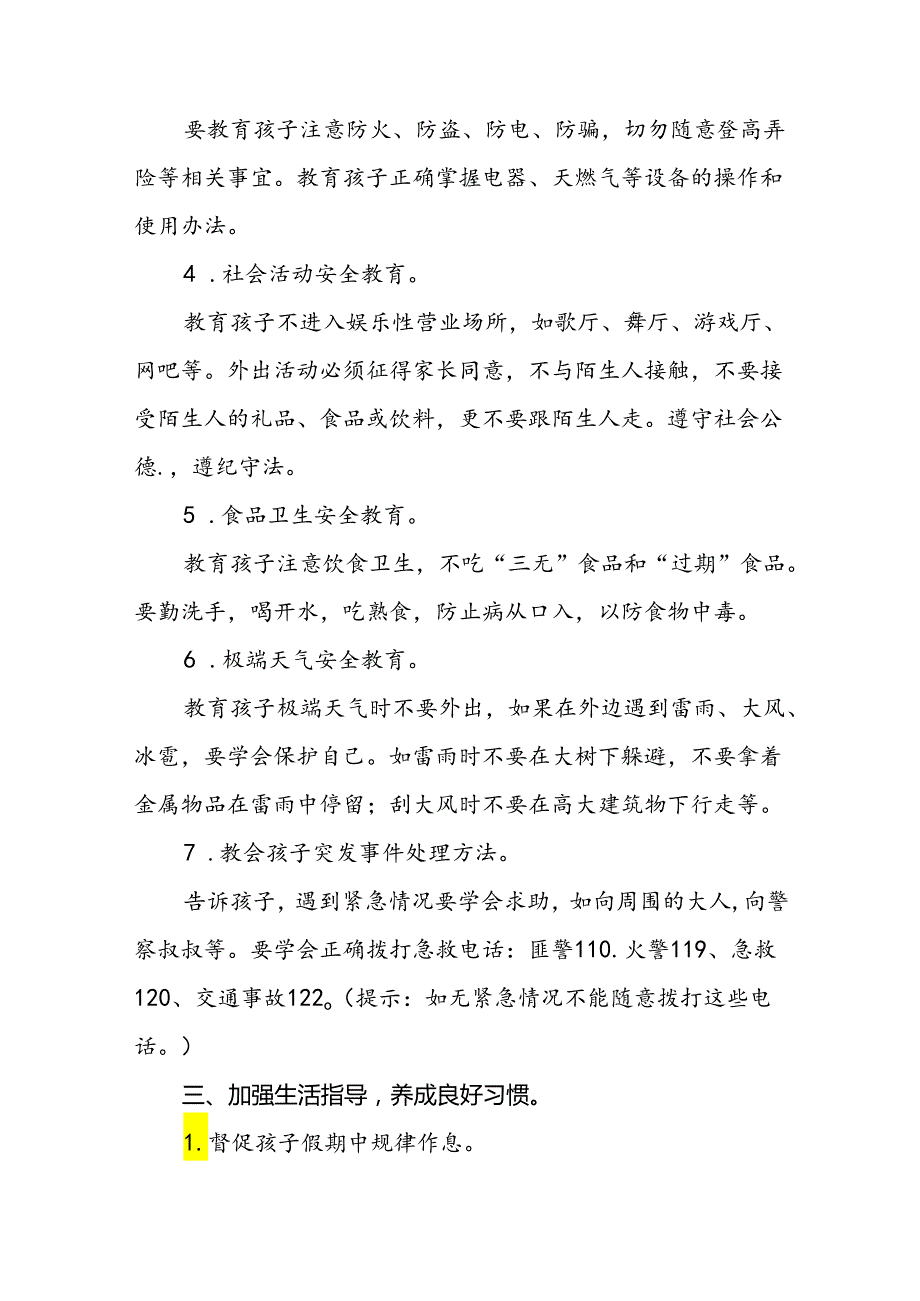 要教育孩子注意防火、防盗、防电、防骗，切勿随意登高弄
险等相关事宜。教育孩子正确掌握电器、天燃气等设备的操作和
使用办法。
4 .社会活动安全教育。
教育孩子不进入娱乐性营业场所，如歌厅、舞厅、游戏厅、
网吧等。外出活动必须征得家长同意，不与陌生人接触，不要接
受陌生人的礼品、食品或饮料，更不要跟陌生人走。遵守社会公
德.，遵纪守法。
5 .食品卫生安全教育。
教育孩子注意饮食卫生，不吃“三无”食品和“过期”食品。
要勤洗手，喝开水，吃熟食，防止病从口入，以防食物中毒。
6 .极端天气安全教育。
教育孩子极端天气时不要外出，如果在外边遇到雷雨、大风、
冰雹，要学会保护自己。如雷雨时不要在大树下躲避，不要拿着
金属物品在雷雨中停留；刮大风时不要在高大建筑物下行走等。
7 .教会孩子突发事件处理方法。
告诉孩子，遇到紧急情况要学会求助，如向周围的大人,向警
察叔叔等。要学会正确拨打急救电话：匪警110.火警119、急救
120、交通事故122。（提示：如无紧急情况不能随意拨打这些电
话。）
三、加强生活指导，养成良好习惯。
1.督促孩子假期中规律作息。